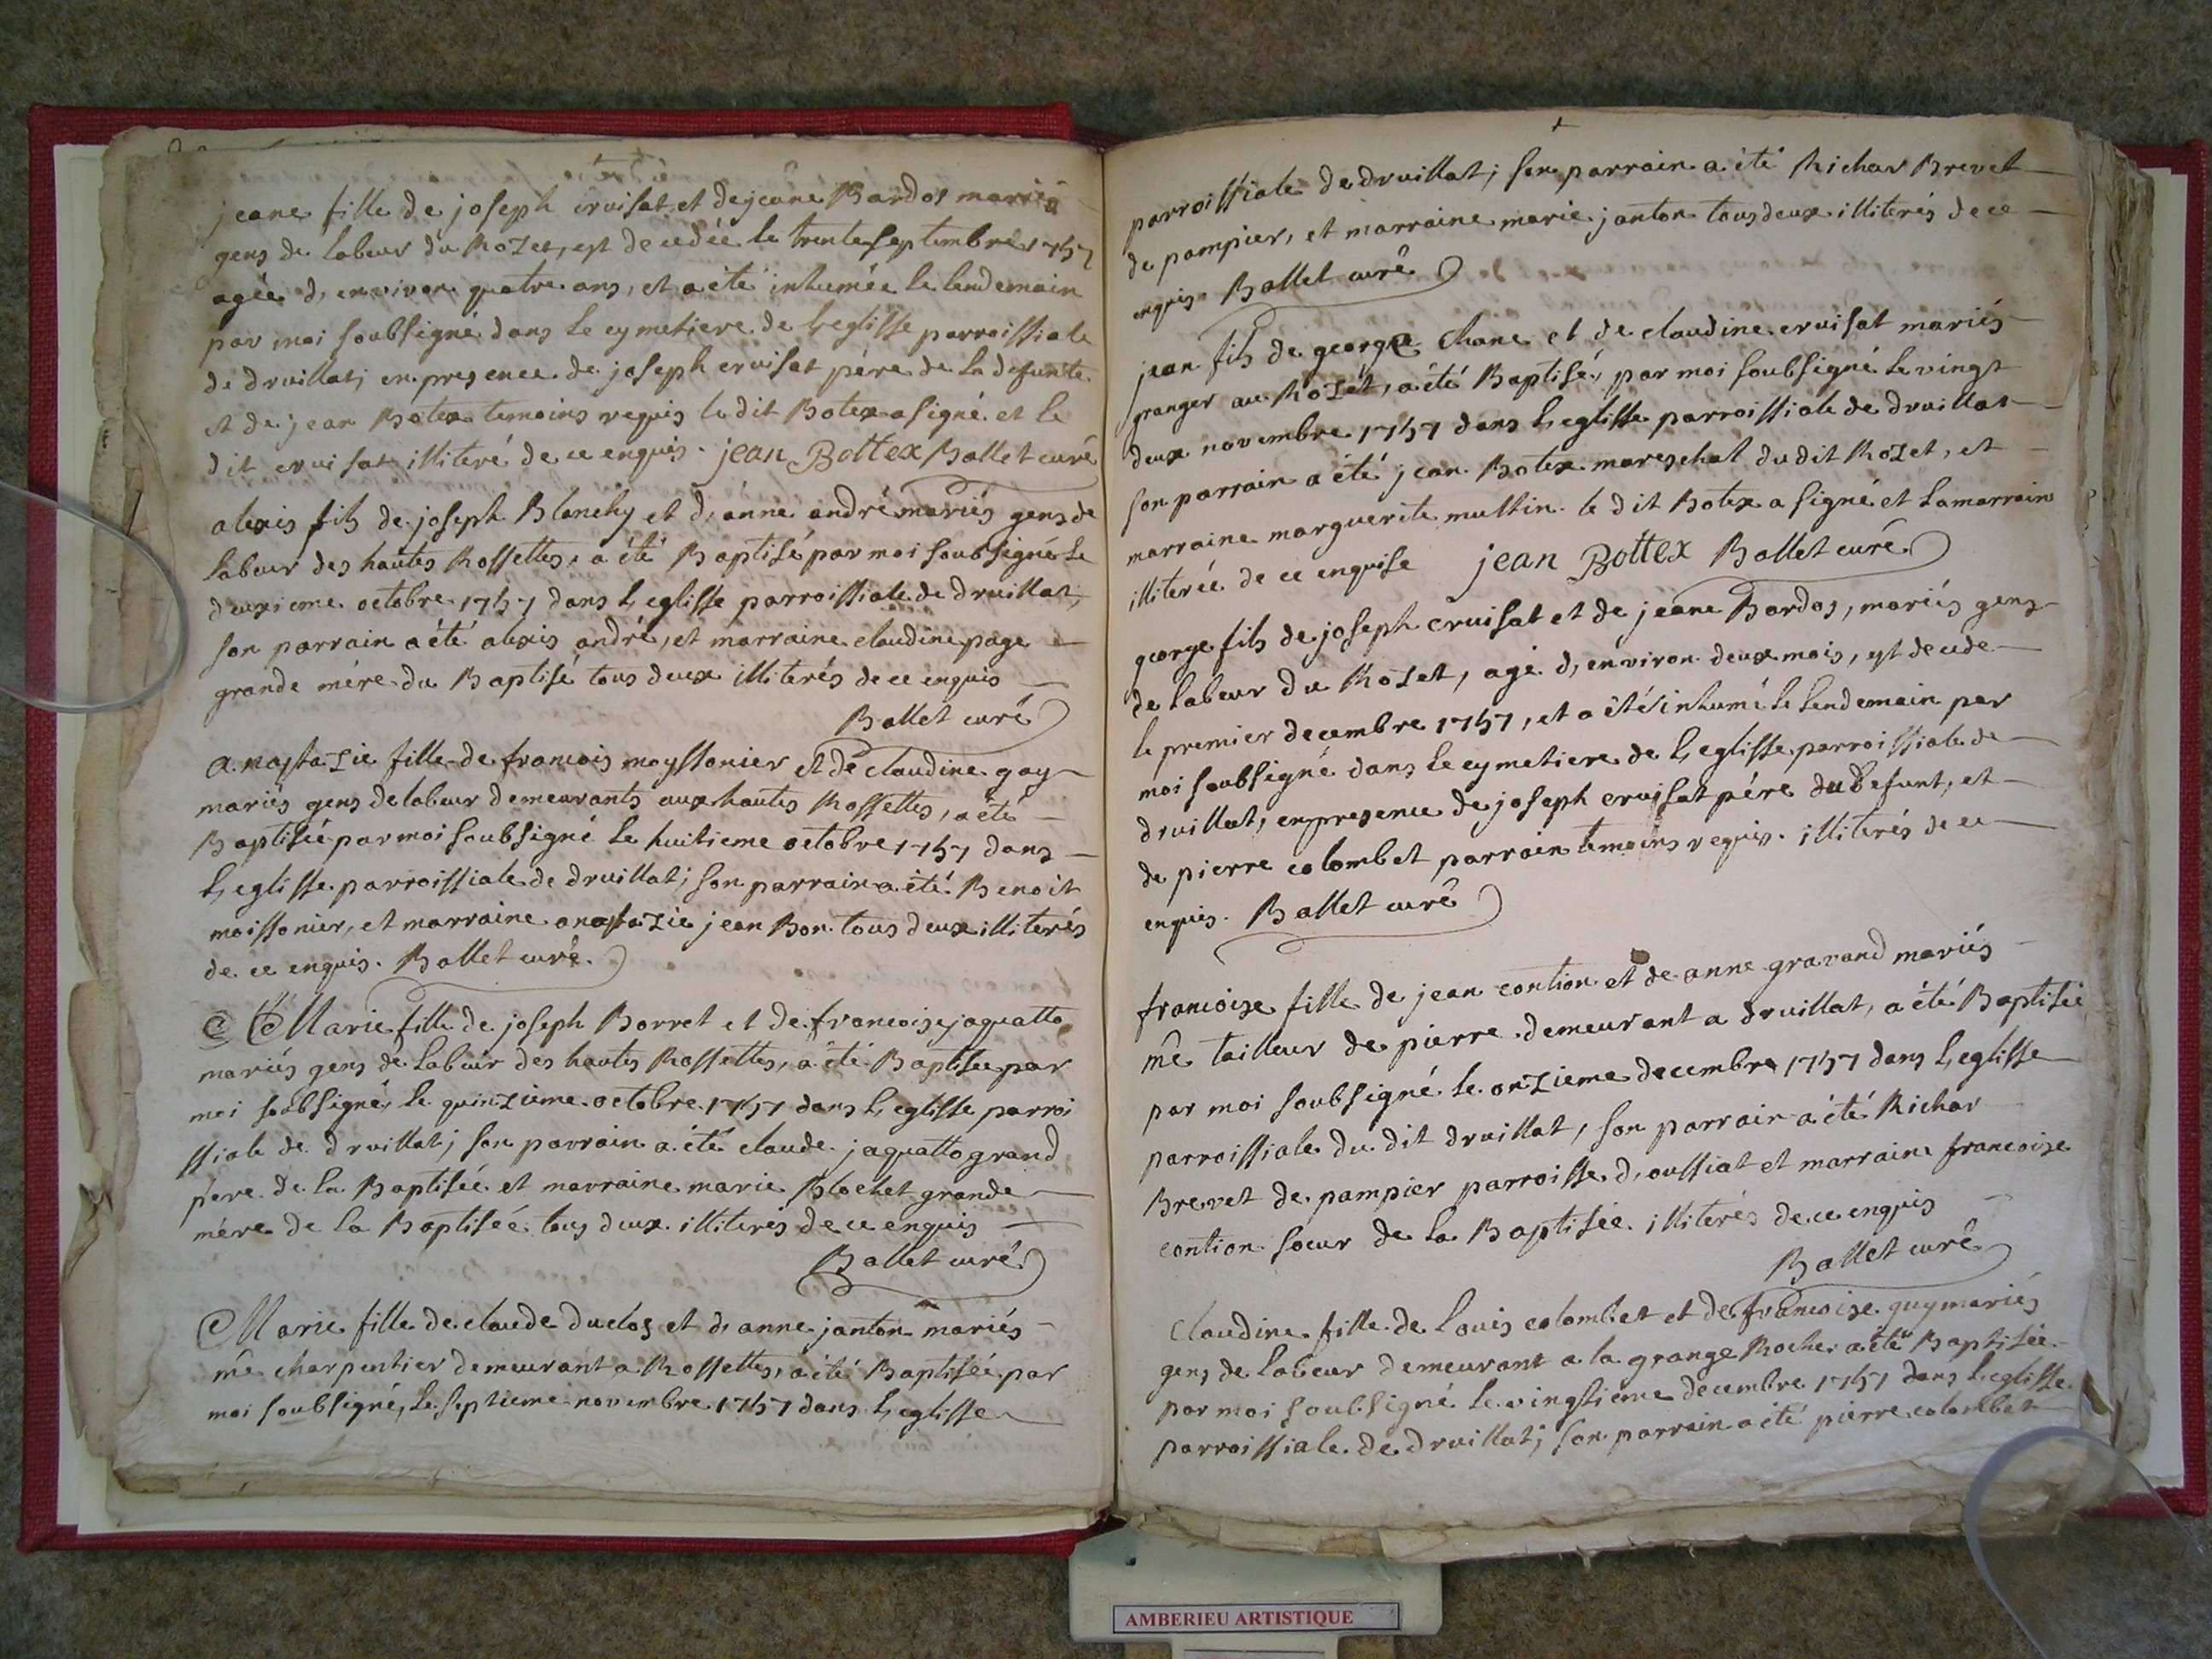 jeane fille de joseph cruisat et de jeane Bardos mariés
gens de labeur du Rozet, est decedée le trente septembre 1757
agée d, environ quatre ans, et a été inhumée le lendemain
par moi soubsigné dans le cymetiere de l,eglisse parroissiale
de druillat; en presence de joseph cruisat pére de la defunte
et de jean Botex temoins requis le dit Botex a signé et le
dit cruisat illiteré de ce enquis. jean Bottex Ballet curé
alexis fils de joseph Blanchy et d, anne andré mariés gens de
labeur des hautes Rossettes, a été Baptisé par moi soubsigné le
deuxieme octobre 1757 dans l, eglisse parroissiale de druillat,
son parrain a été alexis andré, et marraine claudine page
grande mére du Baptisé tous deux illiterés de ce enquis
Ballet curé
anastazie fille de francois moyssonier et de claudine gay
mariés gens de labeur demeurants aux hautes Rossettes, a été
Baptisée par moi soubsigné le huitieme octobre 1757 dans
l, eglisse parroissiale de druillat; son parrain a été Benoit
moissonier, et marraine anastazie jean Bon tous deux illiterés
de ce enquis. Ballet curé.
Marie fille de joseph Borret et de francoise jaquatto
mariés gens de labeur des hautes Rossettes, a été Baptisée par
moi soubsigné, le quinzieme octobre 1757 dans l, eglisse parroi
ssiale de druillat; son parrain a été claude jaquatto grand
pere de la Baptisée et marraine marie Blochet grande
mére de la Baptisée tous deux illiterés de ce enquis
Ballet curé
Marie fille de claude duclos et d, anne janton mariés
me charpentier demeurant a Rossettes, a été Baptisée par
moi soubsigné, le septieme novembre 1757 dans l, eglisse
parroissiale de druillat; son parrain a été Richar Brevet
de pampier, et marraine marie janton tous deux illiterés de ce
enquis Ballet curé
jean fils de george Chane et de claudine cruisat mariés
granger au Rozet, a été Baptisé, par moi soubsigné le vingt
deux novembre 1757 dans l, eglisse parroissiale de druillat
son parrain a été jean Botex mareschal du dit Rozet, et
marraine marguerite multin le dit Botex a signé et la marraine
illiterée de ce enquise jean Bottex Ballet curé
george fils de joseph cruisat et de jeane Bardos, mariés gens
de labeur du Rozet, agé d, environ deux mois, est decede
le premier decembre 1757, et a été inhumé le lendemain par
moi soubsigné dans le cymetiere de l, eglisse parroissiale de
druillat, en presence de joseph cruisat pére du defunt, et
de pierre colombet parrain temoins requis. illiterés de ce
enquis. Ballet curé
francoise fille de jean contion et de anne gravand mariés
me tailleur de pierre demeurant a druillat, a été Baptisée
par moi soubsigné le onzieme decembre 1757 dans l, eglisse
parroissiale du dit druillat, son parrain a été Richar
Brevet de pampier parroisse d, oussiat et marraine francoise
contion soeur de la Baptisée illiterés de ce enquis
Ballet curé
Claudine fille de Louis colombet et de francoise guy mariés
gens de labeur demeurant a la grange Roche, a été Baptisée
par moi soubsigné le vingtieme decembre 1757 dans l, eglisse
parroissiale de druillat; son parrain a été pierre colombet
AMBERIEU ARTISTIQUE